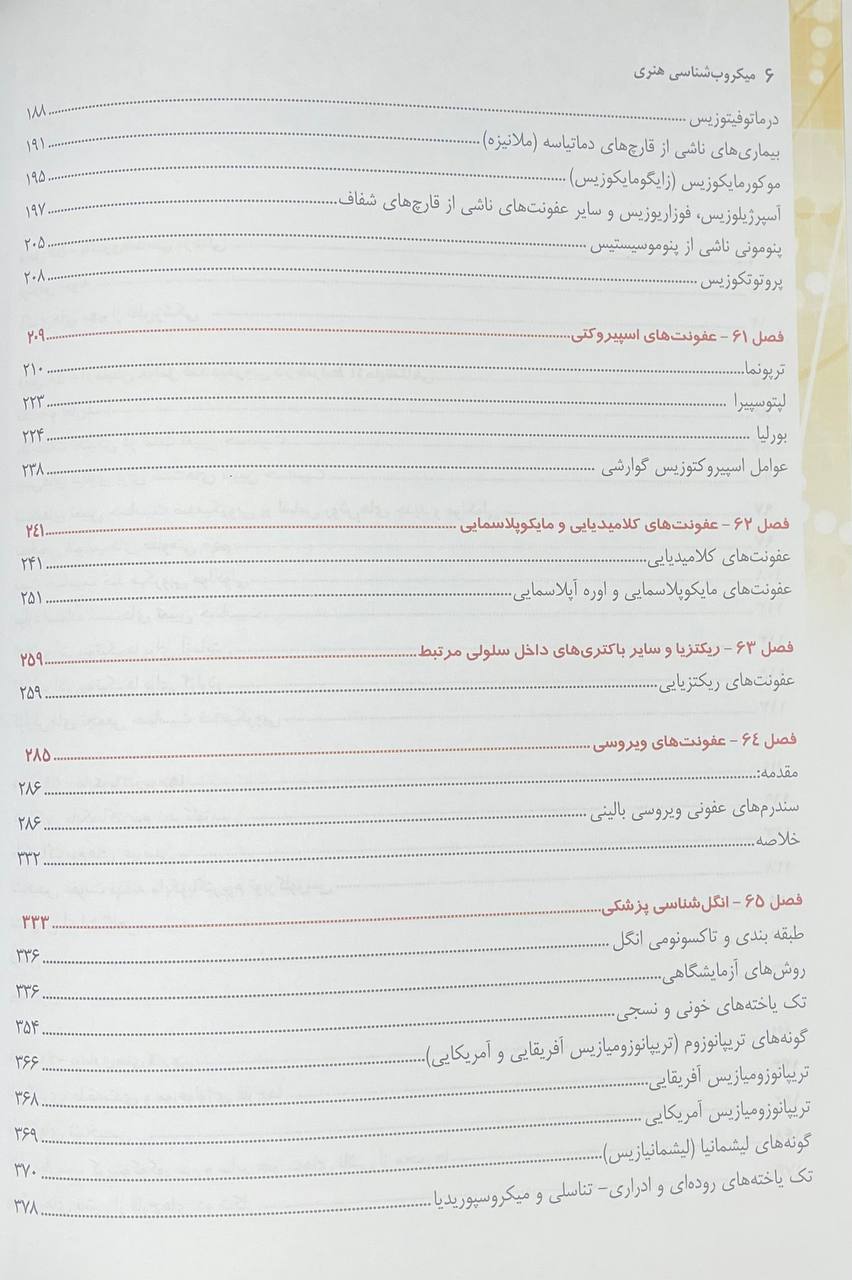 ۶ میکروب‌شناسی هنری
درماتوفیتوزیس ۱۸۸
بیماری‌های ناشی از قارچ‌های دماتیاسه (ملانیزه) ۱۹۱
موکورمایکوزیس (زایگومایکوزیس) ۱۹۵
آسپرژیلوزیس، فوزاریوزیس و سایر عفونت‌های ناشی از قارچ‌های شفاف ۱۹۷
پنومونی ناشی از پنوموسیستیس ۲۰۵
پروتوتکوزیس ۲۰۸
فصل ۶۱ - عفونت‌های اسپیروکتی ۲۰۹
ترپونما ۲۱۰
لپتوسپیرا ۲۲۳
بورلیا ۲۲۴
عوامل اسپیروکتوزیس گوارشی ۲۳۸
فصل ۶۲ - عفونت‌های کلامیدیایی و مایکوپلاسمایی ۲۴۱
عفونت‌های کلامیدیایی ۲۴۱
عفونت‌های مایکوپلاسمایی و اوره آپلاسمایی ۲۵۱
فصل ۶۳ - ریکتزیا و سایر باکتری‌های داخل سلولی مرتبط ۲۵۹
عفونت‌های ریکتزیایی ۲۵۹
فصل ۶۴ - عفونت‌های ویروسی ۲۸۵
مقدمه: ۲۸۶
سندرم‌های عفونی ویروسی بالینی ۲۸۶
خلاصه ۳۳۲
فصل ۶۵ - انگل‌شناسی پزشکی ۳۳۳
طبقه بندی و تاکسونومی انگل ۳۳۶
روش‌های آزمایشگاهی ۳۳۶
تک یاخته‌های خونی و نسجی ۳۵۴
گونه‌های تریپانوزوم (تریپانوزومیازیس آفریقایی و آمریکایی) ۳۶۶
تریپانوزومیازیس آفریقایی ۳۶۸
تریپانوزومیازیس آمریکایی ۳۶۹
گونه‌های لیشمانیا (لیشمانیازیس) ۳۷۰
تک یاخته‌های روده‌ای و ادراری- تناسلی و میکروسپوریدیا ۳۷۸